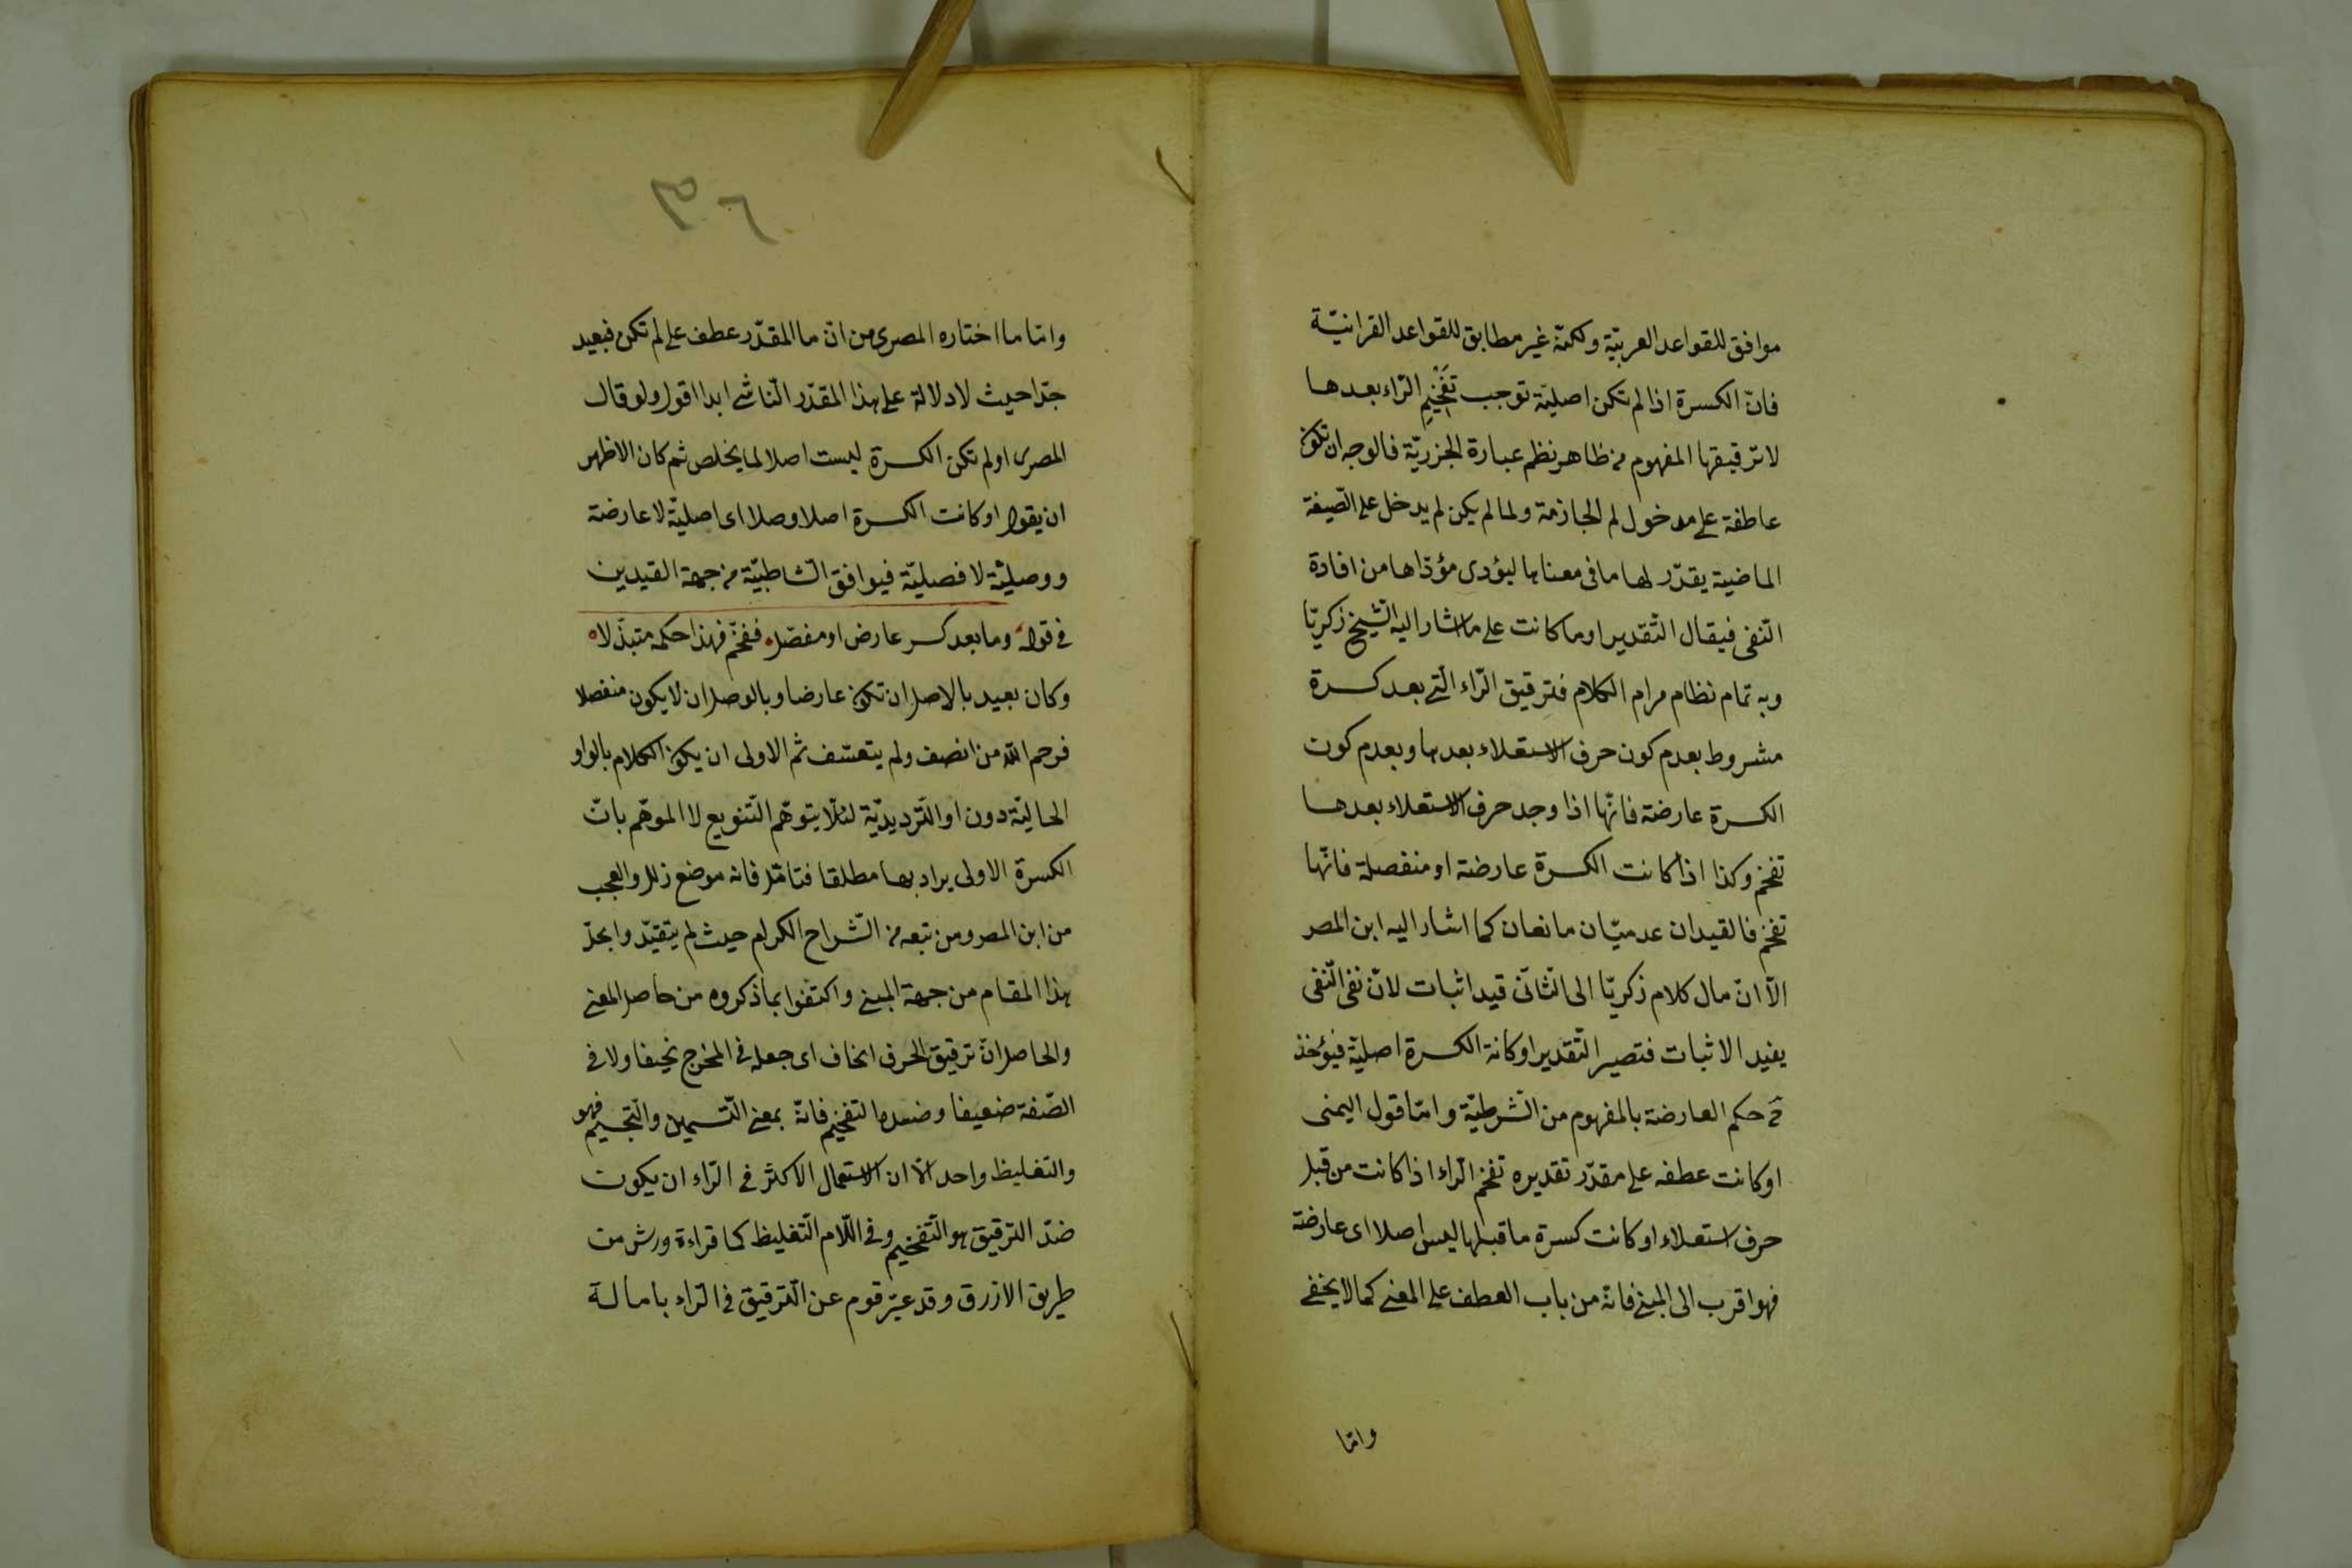 موافق للقواعد العربيّة ولكنّه غير مطابق للقواعد القرانيّة
فانّ الكسرة اذا لم تكن اصليّة توجب تفخيم الرّاء بعدها
لا ترقيقها المفهوم من ظاهر نظم عبارة الجزريّة فالوجه ان تكون
عاطفة على مدخول لم الجازمة ولما لم يكن لم يدخل على الصّيغة
الماضية يقدّر لها ما في معناها ليؤدى مؤدّاها من افادة
النّفى فيقال التّقدير او ما كانت على ما اشار اليه الشّيخ زكريّا
وبه تمام نظام مرام الكلام فترقيق الرّاء الّتى بعد كسرة
مشروط بعدم كون حرف الاستعلاء بعدها وبعدم كون
الكسرة عارضة فانّها اذا وجد حرف الاستعلاء بعدها
تفخم وكذا اذا كانت الكسرة عارضة او منفصلة فانّها
تفخم فالقيدان عدميّان مانعان كما اشار اليه ابن المصر
الّا انّ مال كلام زكريّا الى الثّانى قيد اثبات لانّ نفى النّفى
يفيد الاثبات فتصير التّقدير او كانة الكسرة اصليّة فيؤخذ
ح حكم العارضة بالمفهوم من الشّرطيّة وامّا قول اليمنى
او كانت عطفه على مقدّر تقديره تفخم الرّاء اذا كانت من قبل
حرف استعلاء او كانت كسرة ما قبلها ليس اصلا اى عارضة
فهو اقرب الى المبنى فانّه من باب العطف على المعنى كما لا يخفى
وامّا
وامّا ما اختاره المصرى من انّ ما المقدّر عطف على لم تكن فبعيد
جدّا حيث لا دلالة على هذا المقدّر النّاشى ابدا اقول ولو قال
المصرى او لم تكن الكسرة ليست اصلا لما يخلص ثم كان الاظهر
ان يقول او كانت الكسرة اصلا وصلا اى اصليّة لا عارضة
ووصليّة لا فصليّة فيوافق الشّاطبيّة من جهة القيدين
فى قوله وما بعد كسر عارض او مفصّل ففخّم فهذا حكمه متبذّلا
وكان بعيد بالاصل ان تكون عارضا وبالوصل ان لا يكون منفصلا
فرحم اللّه من انصف ولم يتعسّف ثم الاولى ان يكون الكلام بالواو
الحاليّة دون او التّرديديّة لئلّا يتوهّم التّنويع لا الموهّم بانّ
الكسرة الاولى يراد بها مطلقا فتامّل فانه موضع زلل والعجب
من ابن المصر ومن تبعه من الشّراح الكرام حيث لم يتقيّدوا بحلّ
هذا المقام من جهة المبنى واكتفوا بما ذكروه من حاصل المعنى
والحاصل انّ ترقيق الحرف انحاف اى جعله فى المخرج نحيفا ولا فى
الصّفة ضعيفا وضدها التفخيم فانّه بمعنى التّسمين والتّجسيم فهو
والتغليظ واحد الّا ان الاستعمال الاكثر فى الرّاء ان يكون
ضدّ الترقيق هو التّفخيم وفى اللّام التّغليظ كما قراءة ورش من
طريق الازرق وقد عبّر قوم عن التّرقيق فى الرّاء بامالة